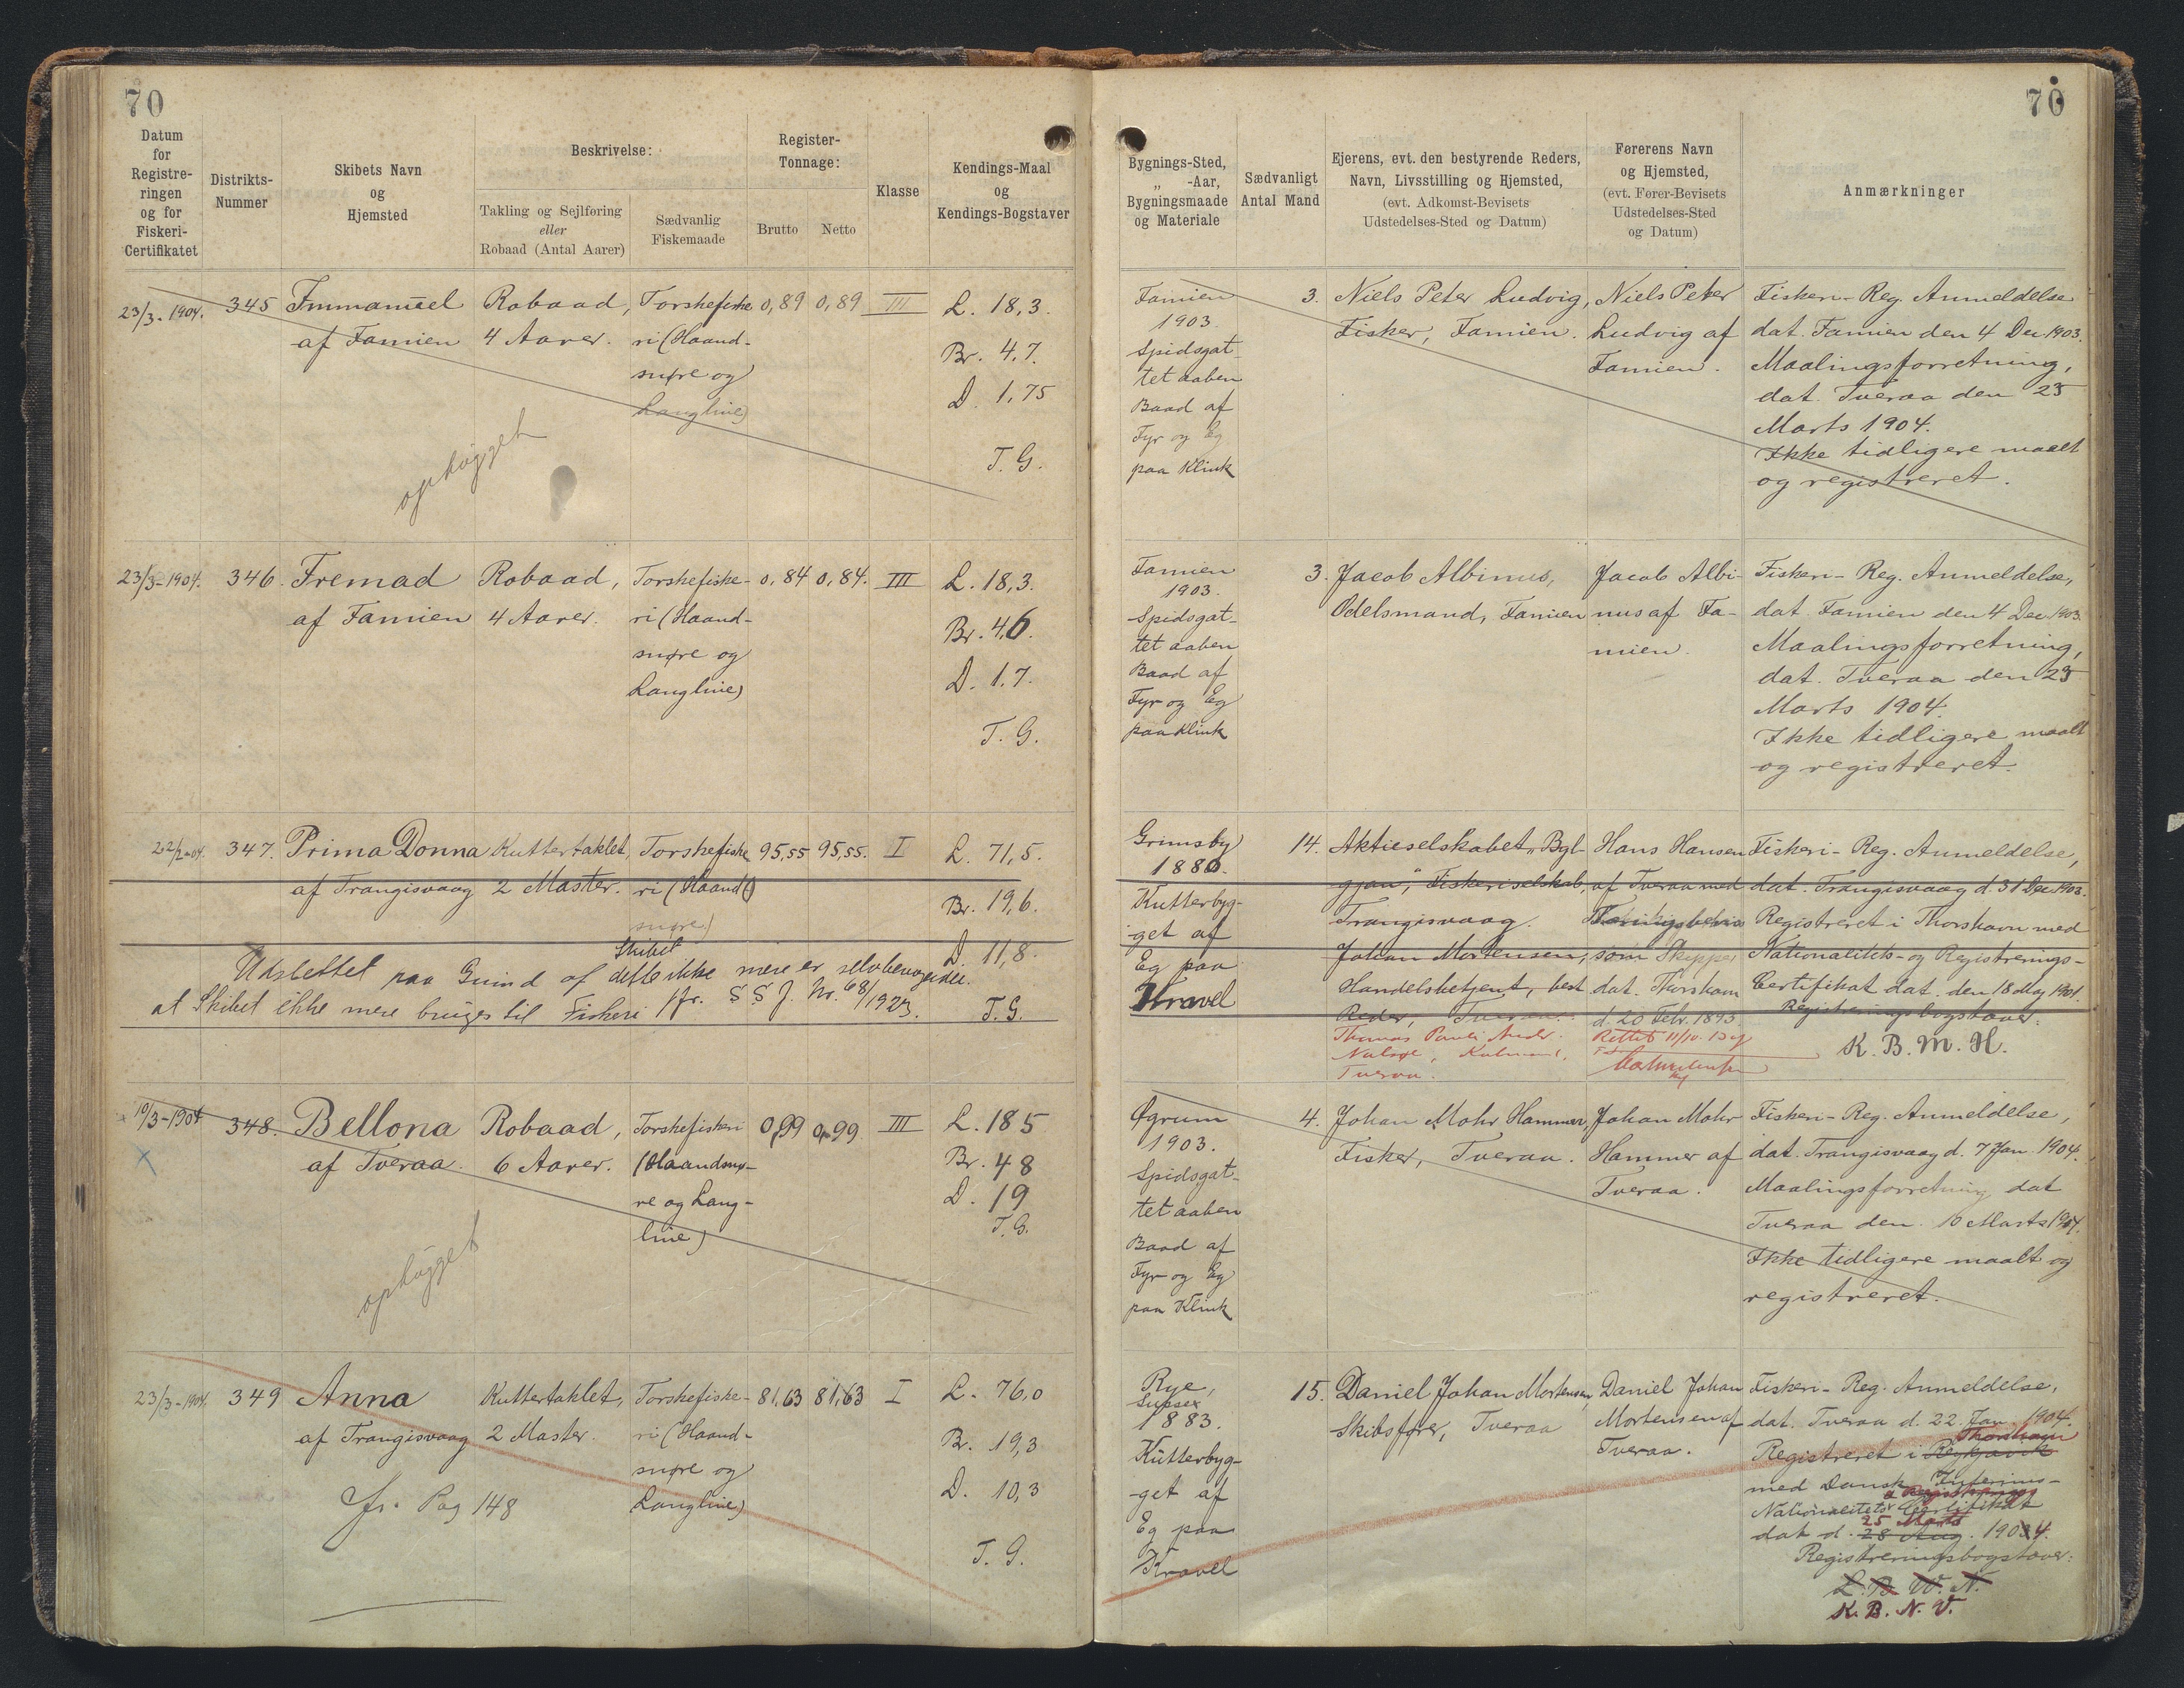 70
70
Datum
for
Registre-
ringen
og for
Fiskeri-
Certifikatet
Distrikts-
Nummer
Skibets Navn
og
Hjemsted
Beskrivelse:
Takling og Sejlføring
eller
Robaad (Antal Aarer)
Sædvanlig
Fiskemaade
Register-
Tonnage:
Brutto
Netto
Klasse
Kendings-Maal
og
Kendings-Bogstaver
Bygnings-Sted,
„ -Aar,
Bygningsmaade
og Materiale
Sædvanligt
Antal Mand
Ejerens, evt. den bestyrende Reders,
Navn, Livsstilling og Hjemsted,
(evt. Adkomst-Bevisets
Udstedelses-Sted og Datum)
Førerens Navn
og Hjemsted,
(evt. Fører-Bevisets
Udstedelses-Sted
og Datum)
Anmærkninger
23/3-1904.
345
Immanuel
af Famien
Robaad,
4 Aarer.
Torskefiske
ri (Haand-
snøre og
Langline)
0,89
0,89
III
L. 18,3.
Br. 4,7.
D. 1,75
T. G.
ophugget
Famien
1903.
Spidsgat-
tet aaben
Baad af
Fyr og Eg
paa Klink
3.
Niels Peter Ludvig,
Fisker, Famien.
Niels Peter
Ludvig af
Famien.
Fiskeri-Reg. Anmeldelse
dat. Famien den 4 Dec 1903.
Maalingsforretning,
dat. Tveraa den 23
Marts 1904.
Ikke tidligere maalt
og registreret.
23/3-1904.
346.
Fremad
af Famien
Robaad,
4 Aarer.
Torskefiske-
ri (Haand-
snøre og
Langline)
0,84
0,84.
III
L. 18,3.
Br. 4,6.
D. 1.7.
T. G.
Famien
1903.
Spidsgat-
tet aaben
Baad af
Fyr og Eg
paa Klink
3.
Jacob Albinus,
Odelsmand, Famien
Jacob Albi-
nus af Fa-
mien.
Fiskeri-Reg. Anmeldelse,
dat. Famien den 4 Dec. 1903.
Maalingsforretning,
dat. Tveraa den 23
Marts 1904.
Ikke tidligere maalt
og registreret.
22/2-04.
347.
Prima Donna
af Trangisvaag
Kuttertaklet,
2 Master.
Torskefiske
ri (Haand
snøre)
95,55
95,55.
I
L. 71,5.
Br. 19,6.
D. 11,8.
T. G.
Udslettet paa Grund af Skibet dette ikke mere er
at Skibet ikke mere bruges til Fiskeri jfr. S S J. Nr. 68/1923.
Grimsby
1880.
Kutterbyg-
get af
Eg paa
Kravel
14.
Aktieselskabet „Byl-
gjan", Fiskeriselskab,
Trangisvaag.
Johan Mortensen,
Handelsbetjent, best
Reder, Tveraa.
Thomas Pauli Ander.
Tveraa.
Hans Hansen
af Tveraa med
som Skipper
dat. Thorshavn
d. 20 Febr. 1893.
Rettet 11/10.
Fiskeri-Reg. Anmeldelse,
dat. Trangisvaag d. 31 Dec. 1903.
Registreret i Thorshavn med
Nationalitets- og Registrerings-
Certifikat dat. den 18 Maj 1901.
Registreringsbogstaver:
K. B. M. H.
10/3-1904
348.
Bellona
af Tveraa.
Robaad,
6 Aarer.
Torskefiskeri
(Haandsnø-
re og Lang-
line)
0,99
0,99
III
L. 185
Br. 48
D. 19
T. G.
ophugget
Øgrum
1903.
Spidsgat-
tet aaben
Baad af
Fyr og Eg
paa Klink
4.
Johan Mohr Hammer,
Fisker, Tveraa.
Johan Mohr
Hammer af
Tveraa.
Fiskeri-Reg. Anmeldelse,
dat. Trangisvaag d. 7 Jan. 1904.
Maalingsforretning dat
Tveraa den 10 Marts 1904.
Ikke tidligere maalt og
registreret.
23/3-1904.
349
Anna
af Trangisvaag
Kuttertaklet,
2 Master.
Torskefiske-
ri (Haand-
snøre og
Langline)
81,63
81,63
I
L. 76,0
Br. 19,3
D. 10,3
T. G.
jfr. Pag 148
Rye,
Sussex
1883.
Kutterbyg-
get af
Eg paa
Kravel
15.
Daniel Johan Mortensen,
Skibsfører, Tveraa
Daniel Johan
Mortensen af
Tveraa.
Fiskeri-Reg. Anmeldelse,
dat. Tveraa d. 22. Jan. 1904.
Thorshavn
Registreret i Reykjavik
med Dansk Interims-
& Registrerings
Nationalitets Certifikat
25 Marts
dat d. 28 Aug. 1904.
Registreringsbogstaver:
L. B. W. N.
K. B. N. V.